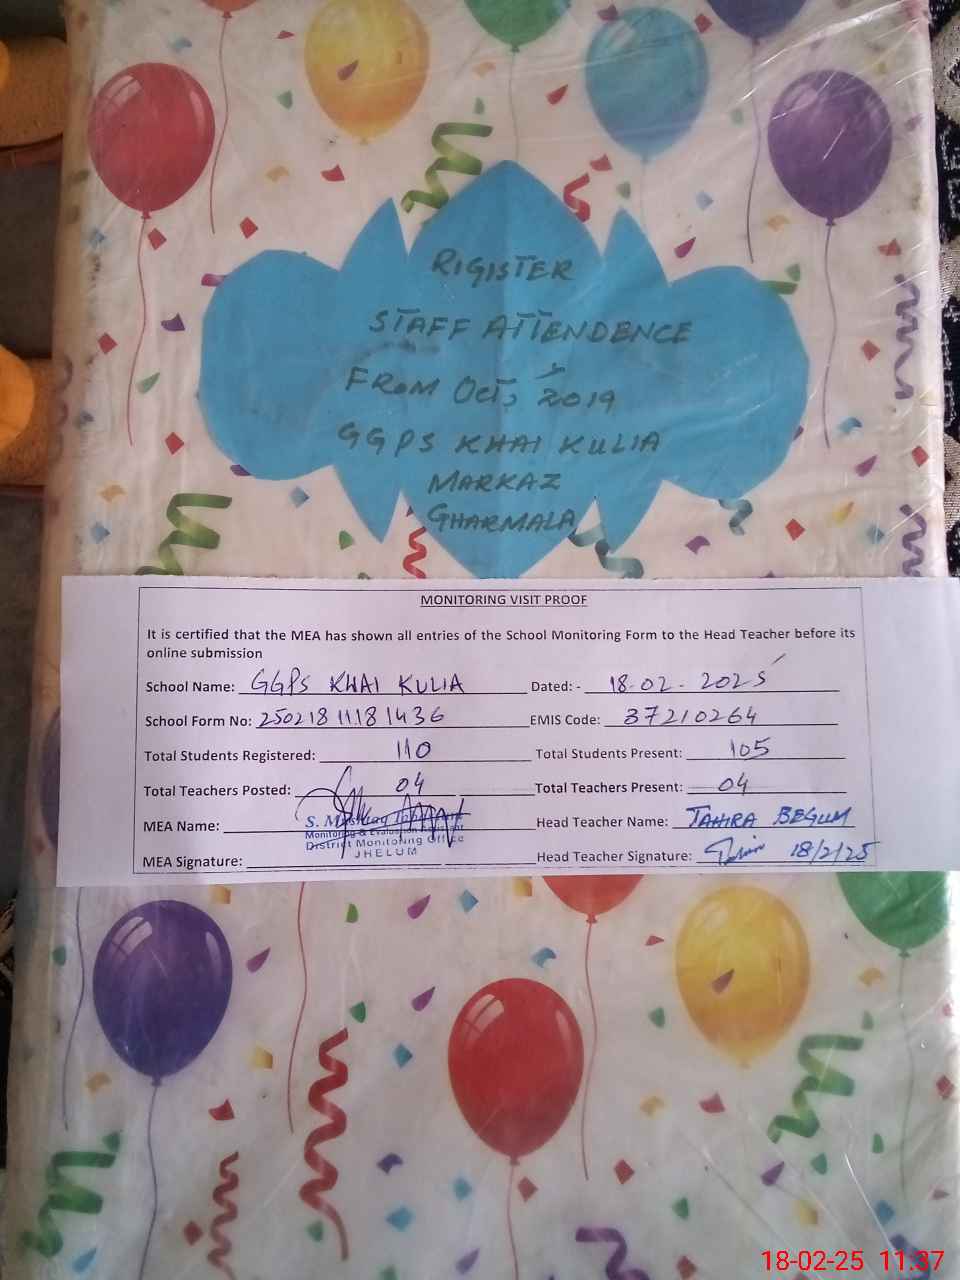 RIGISTER
STAFF ATTENDENCE
FROM Oct, 2019
GGPS KHAI KULIA
MARKAZ
GHARMALA
MONITORING VISIT PROOF
It is certified that the MEA has shown all entries of the School Monitoring Form to the Head Teacher before its
online submission
School Name: GGPS KHAI KULIA Dated: - 18-02-2025
School Form No: 25021811181436 EMIS Code: 37210264
Total Students Registered: 110 Total Students Present: 105
Total Teachers Posted: 04 Total Teachers Present: 04
MEA Name: Head Teacher Name: TAHIRA BEGUM
S. Mushtaq
Monitoring & Evaluation
District Monitoring Office
JHELUM
MEA Signature: Head Teacher Signature: 18/2/25
18-02-25 11:37